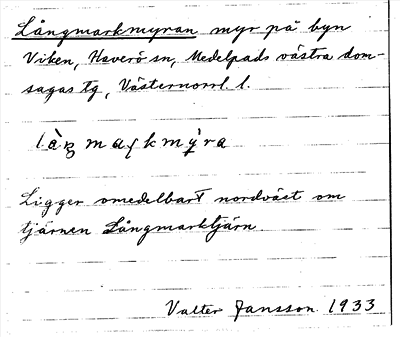 Långmarkmyran myr på byn
Viken, Haverö sn, Medelpads västra dom-
sagas tg, Västernorrl. l.
Ligger omedelbart nordväst om
tjärnen Långmarktjärn
Valter Jansson 1933